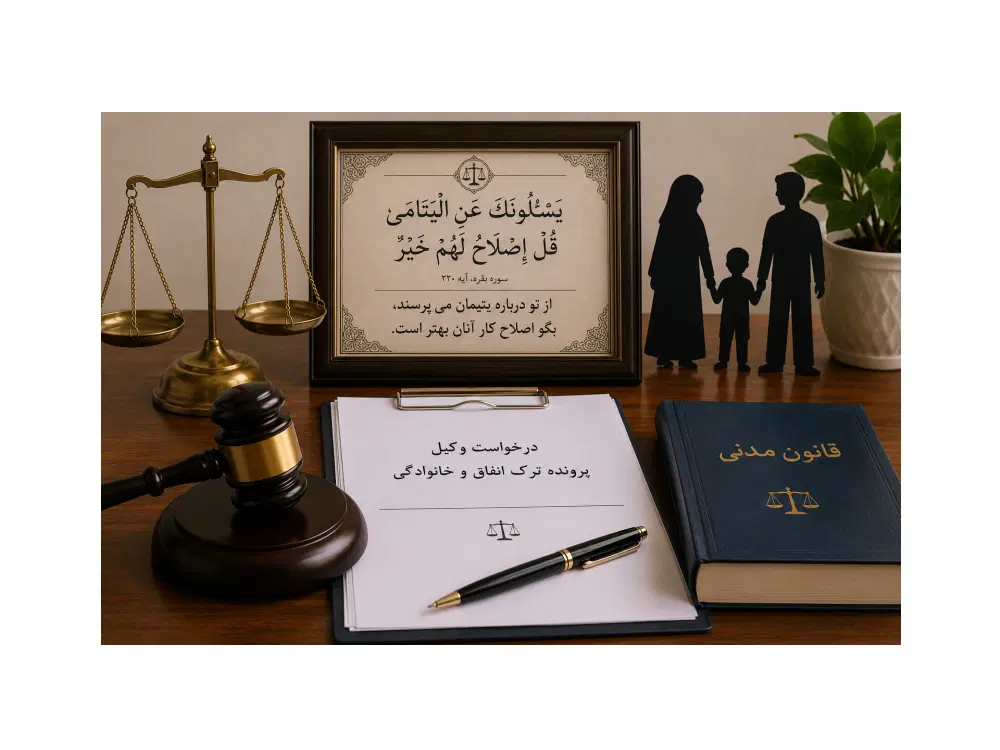 يَسْـَٔلُونَكَ عَنِ الْيَتَامَىٰ
قُلْ إِصْلَاحُ لَهُمْ خَيْرٌ
سوره بقره، آیه ۲۲۰
از تو درباره یتیمان می پرسند،
بگو اصلاح کار آنان بهتر است.
درخواست وکیل
پرونده ترک انفاق و خانوادگی
قانون مدنی